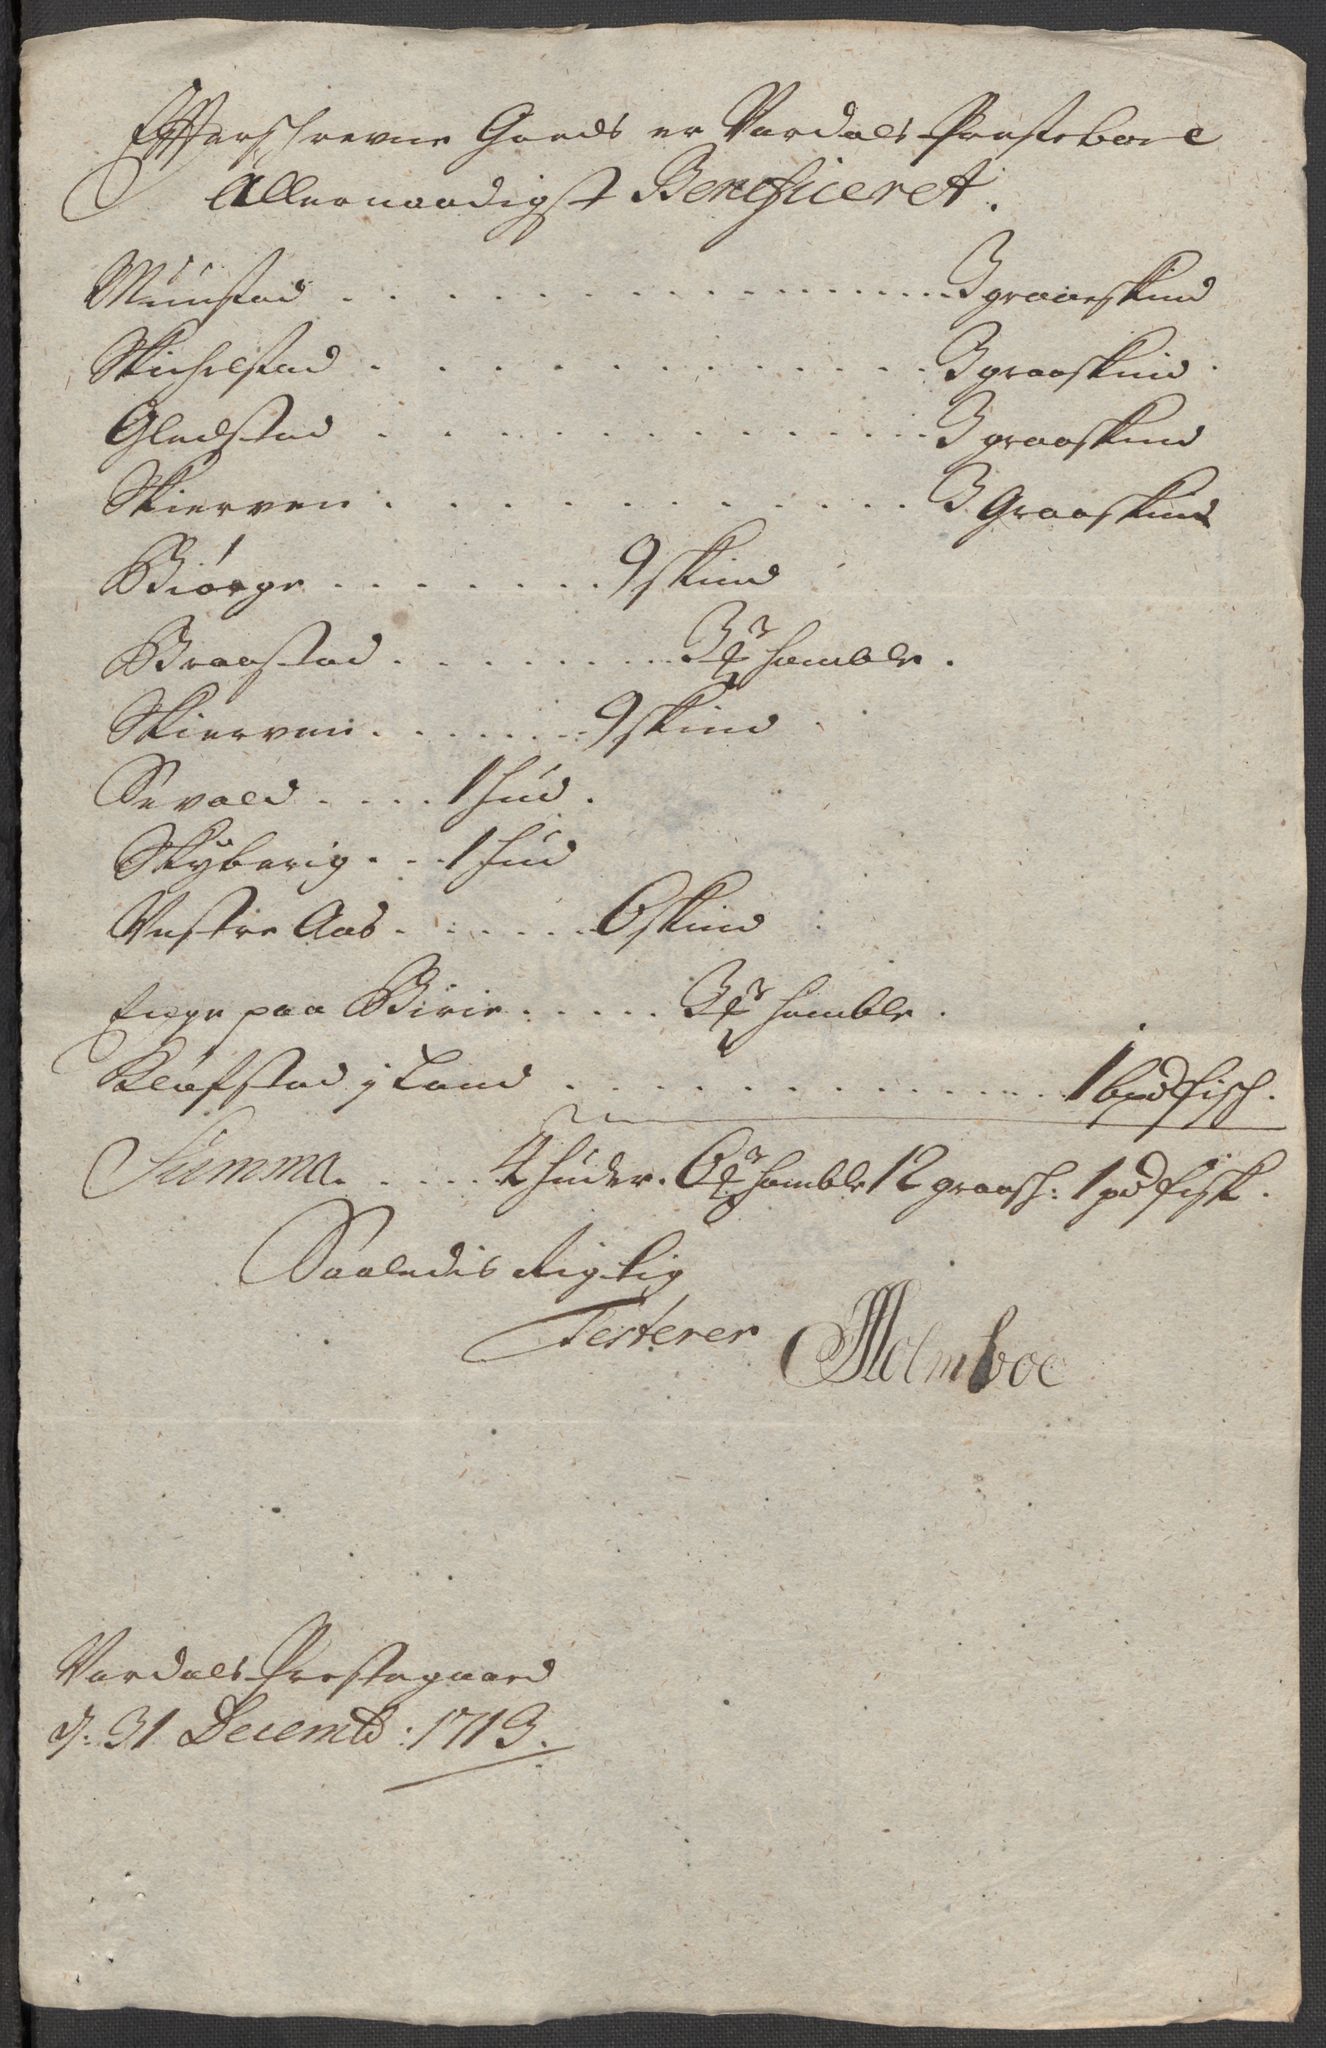 Effterschrevne Goeds er Vardals Præstebord
Allernaadigst Beneficeret.
Muustad . . . . . . . . . 3 graaeskind
Skichelstad . . . . . . . . . 3 graaskind .
Gledstad . . . . . . . . . 3 graaskind
Skierven . . . . . . . . . 3 Graaskind
Biørge . . . . . . . 9 skind
Braastad . . . . . . . 3 humble .
Skierven . . . . . . . 9 skind
Sevald . . . . 1 hud .
Skyberig . . . 1 hud
Vestre Aas . . . . . . 6 skind
Enge paa Birie . . . . . 3 humble .
Kløfstad j Land . . . . . . . . . 1 bpd fisch .
Summa . . . . . 4 huder . 6 humble 12 graask : 1 pd fisk .
Saaledis Rigtig
Testerer Holmboe
Vardals Prestegaard
d: 31 Decemb : 1713 .